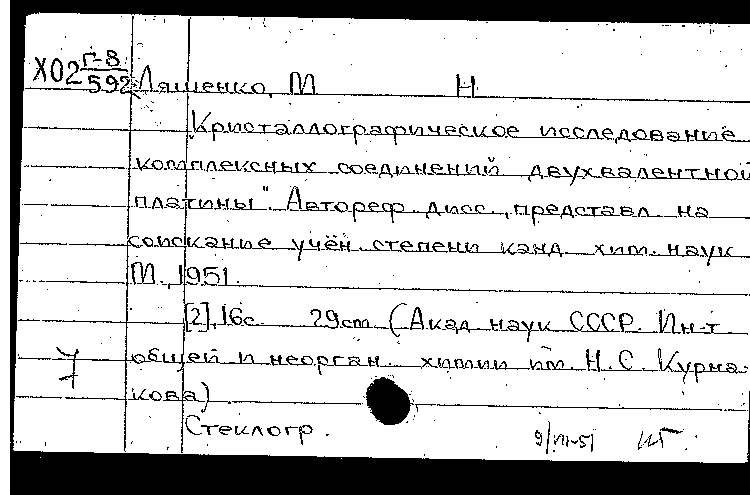 Х02 Г-8/592 Лященко, М Н.
"Кристаллографическое исследование
комплексных соединений двухвалентной
платины". Автореф. дисс., представл. на
соискание учён. степени канд. хим. наук
М., 1951.
[2], 16с. 29cm. (Акад. наук СССР. Ин-т
7 общей и неорган. химии им. Н. С. Курна-
кова)
Стеклогр.
9/VII-51 ШГ.